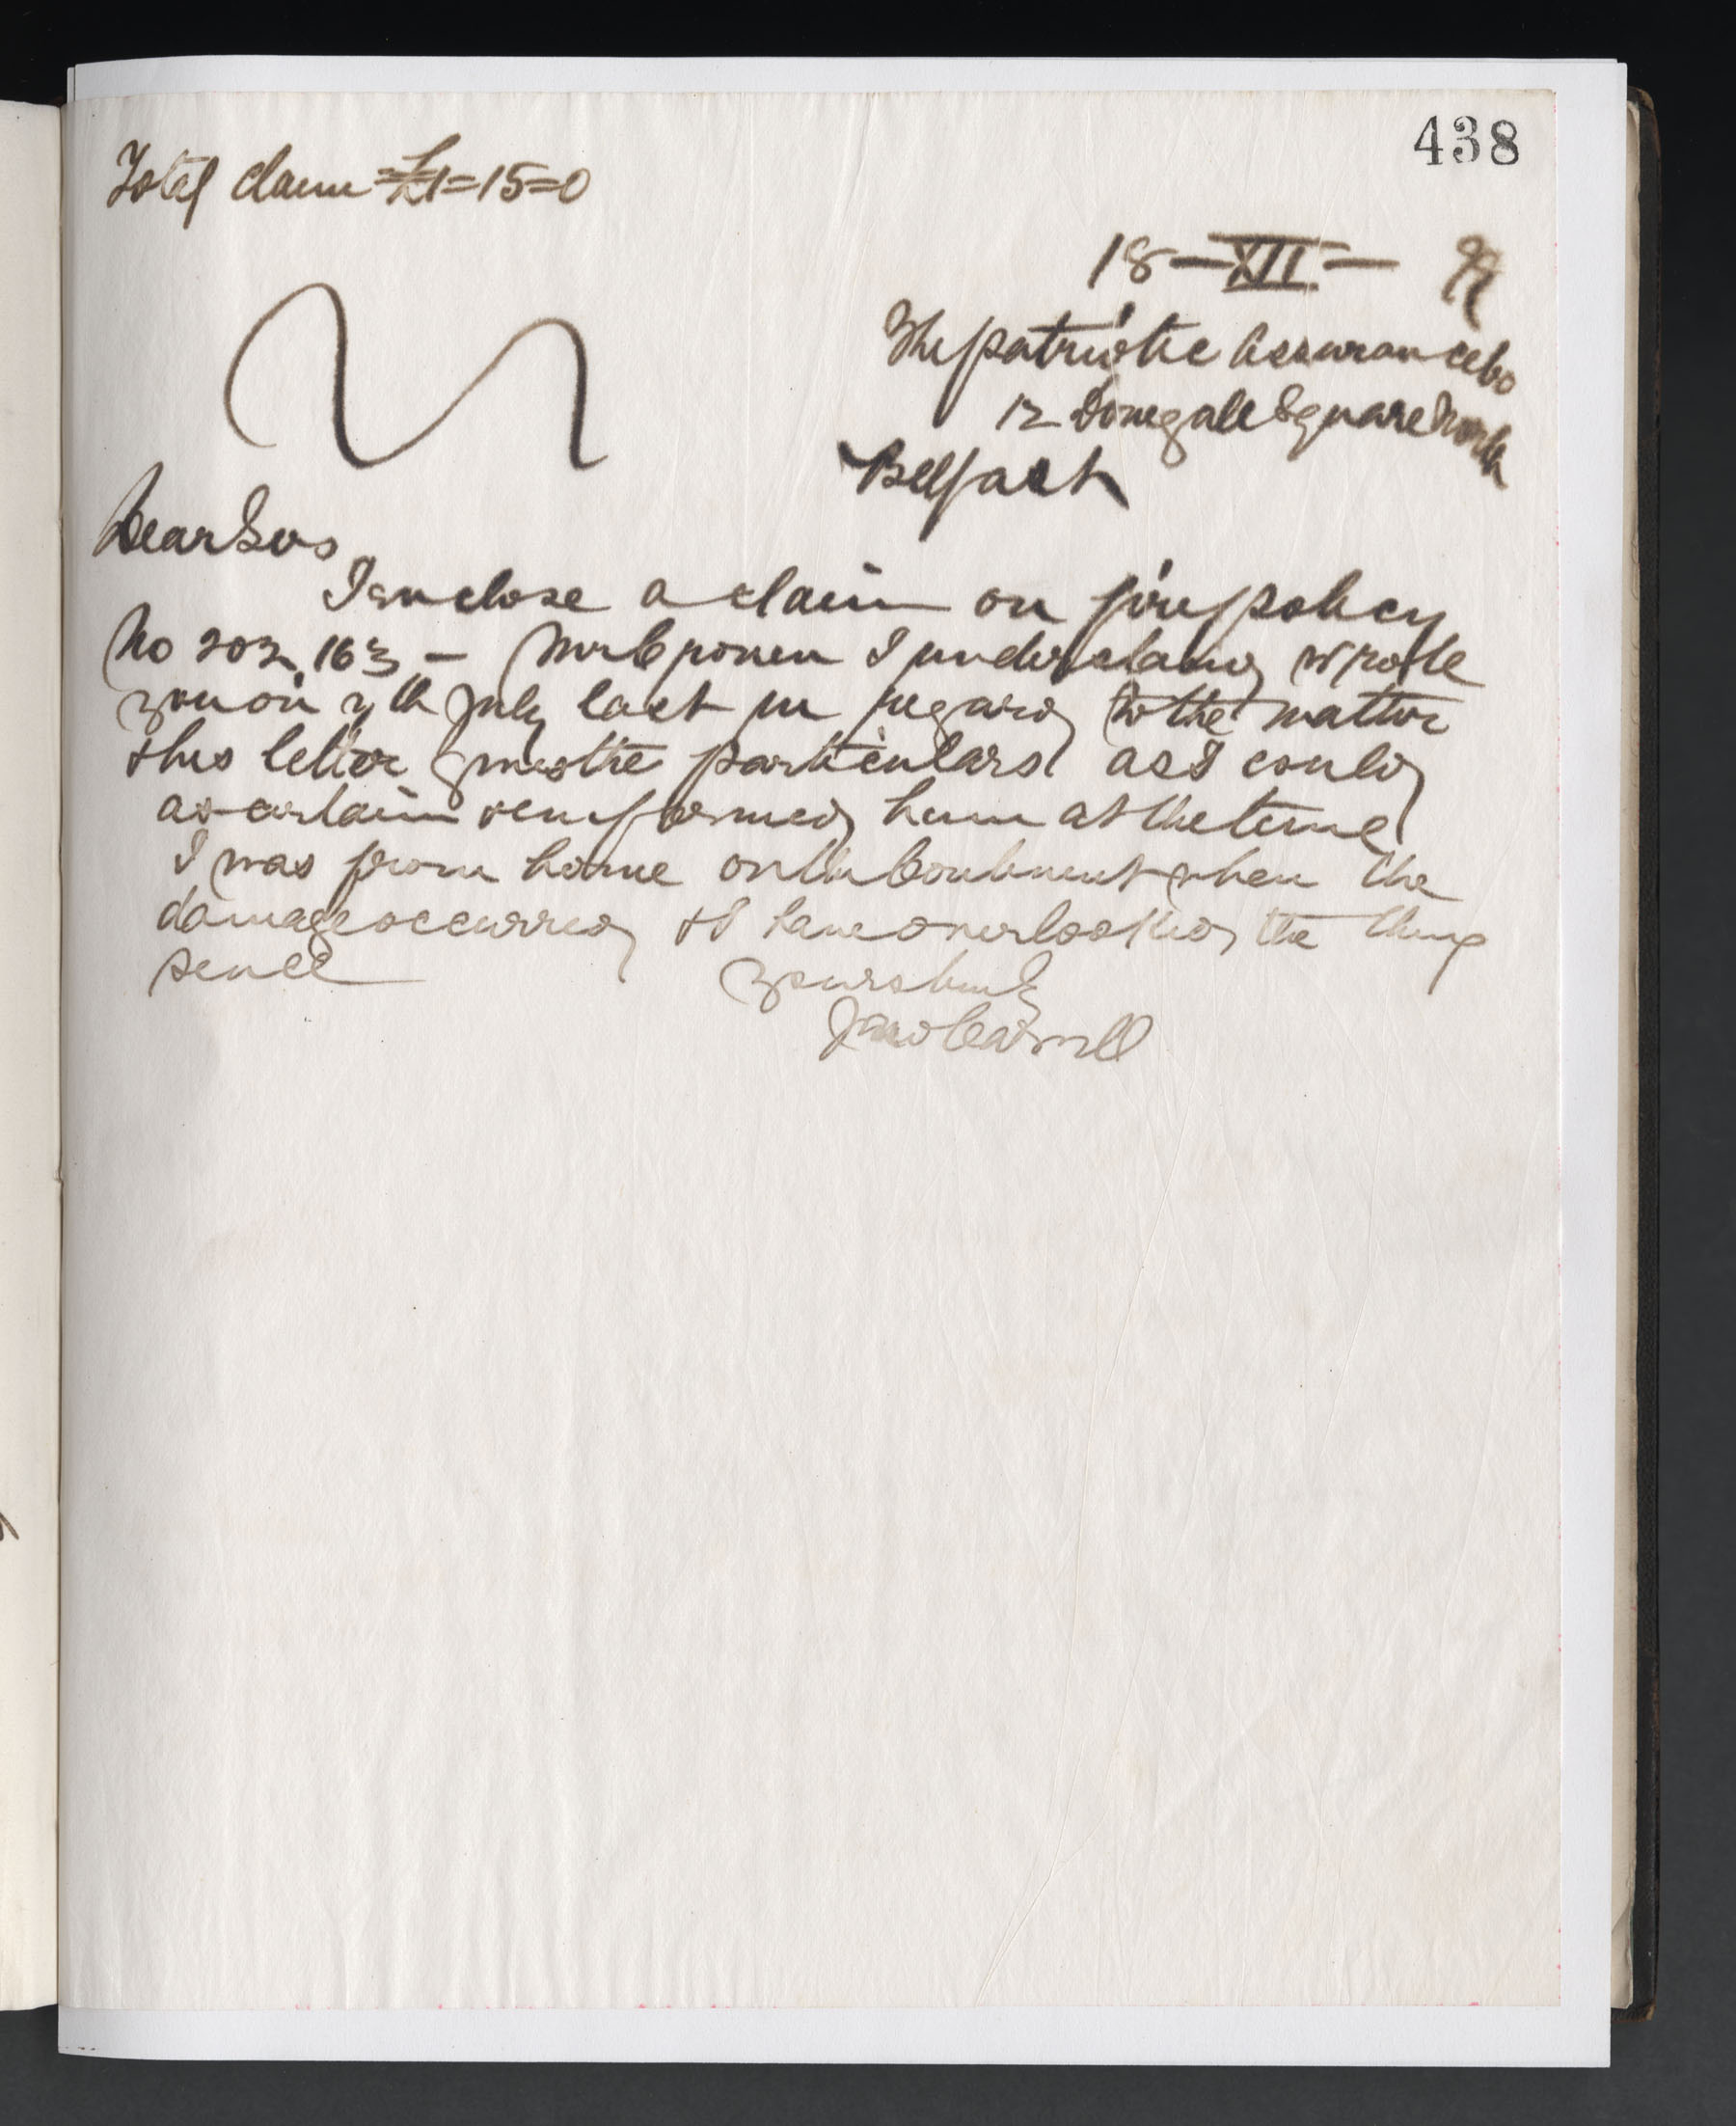 438
Total claim = £1=15=0
18—XII— 99
The patriotic Assurance Co
12 Donegall Square North
Belfast
Dear Sirs
I enclose a claim on fire policy
No 203,163 — Mr I understand wrote
you on 7th July last in regard to the matter
& his letter gives the particulars as I could
ascertain & informed him at the time
I was from home on the Continent when the
damage occurred & I have overlooked the thing
since
yours truly